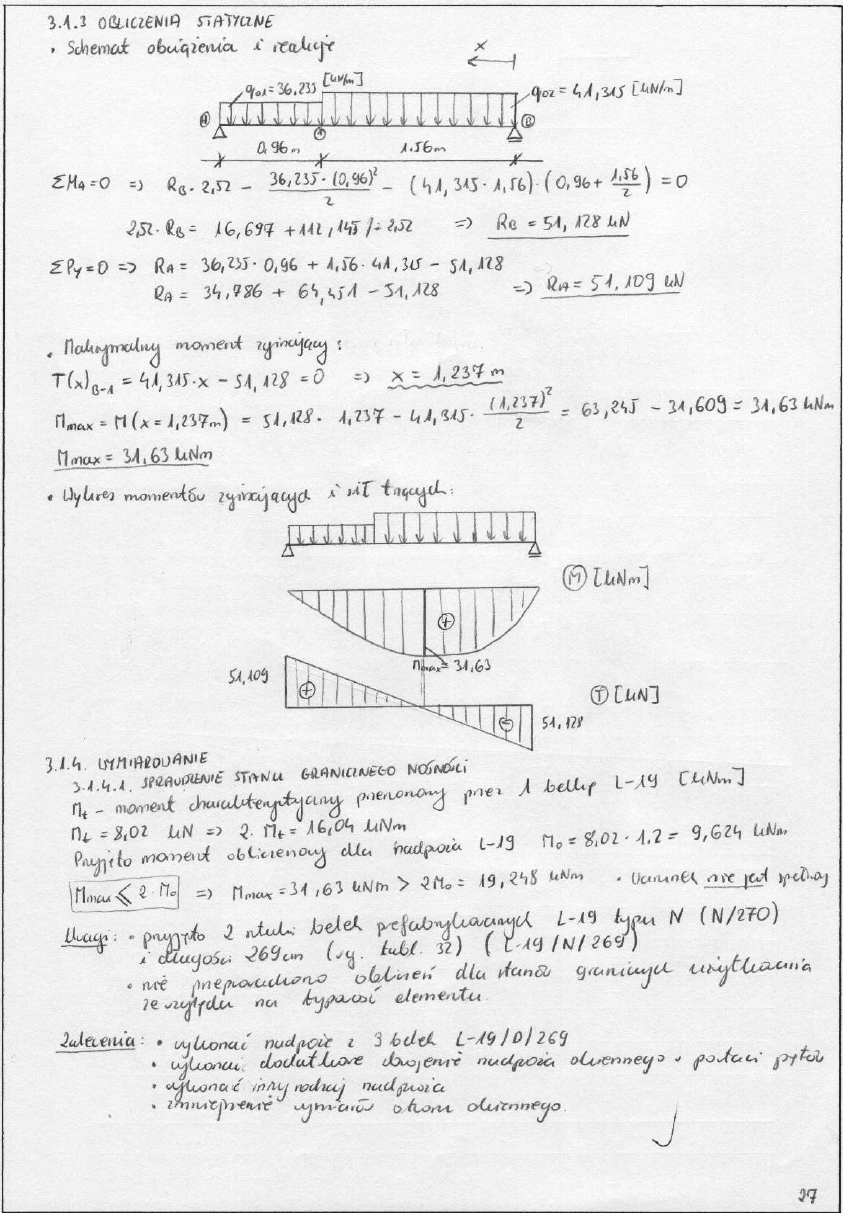 3.1.3 OBLICZENIA STATYCZNE
• Schemat obciążenia i reakcje
x
q01 = 36,235 [kN/m]
q02 = 41,315 [kN/m]
A 1 B
0.96m 1.56m
ΣMA=0 => RB·2,52 - 36,235·(0,96)²/2 - (41,315·1,56)·(0,96+1,56/2) = 0
2,52·RB = 16,697 + 112,145 /÷2,52 => RB = 51,128 kN
ΣPy=0 => RA = 36,235·0,96 + 1,56·41,315 - 51,128
RA = 34,786 + 64,451 - 51,128 => RA = 51,109 kN
• Maksymalny moment zginający :
T(x)B-1 = 41,315·x - 51,128 = 0 => x = 1,237 m
Mmax = M(x=1,237m) = 51,128 · 1,237 - 41,315 · (1,237)²/2 = 63,245 - 31,609 = 31,63 kNm
Mmax = 31,63 kNm
• Wykres momentów zginających i sił tnących:
M [kNm]
+
Mmax = 31,63
51,109
+
T [kN]
-
51,128
3.1.4. WYMIAROWANIE
3.1.4.1. SPRAWDZENIE STANU GRANICZNEGO NOŚNOŚCI
Mt - moment charakterystyczny przenoszony przez 1 belkę L-19 [kNm]
Mt = 8,02 kN => 2·Mt = 16,04 kNm
Przyjęto moment obliczeniowy dla nadproża L-19 Mo = 8,02·1.2 = 9,624 kNm
Mmax ≤ 2·Mo => Mmax = 31,63 kNm > 2Mo = 19,248 kNm • Warunek nie jest spełniony
Uwagi: • przyjęto 2 sztuki belek prefabrykowanych L-19 typu N (N/270)
i długości 269cm (wg. tabl. 32) (L-19/N/269)
• nie przeprowadzono obliczeń dla stanów granicznych użytkowania
ze względu na typowość elementu.
Zalecenia: • wykonać nadproże z 3 belek L-19/D/269
• wykonać dodatkowe zbrojenie nadproża okiennego w postaci prętów
• wykonać inny rodzaj nadproża
• zmniejszenie wymiarów otworu okiennego.
27